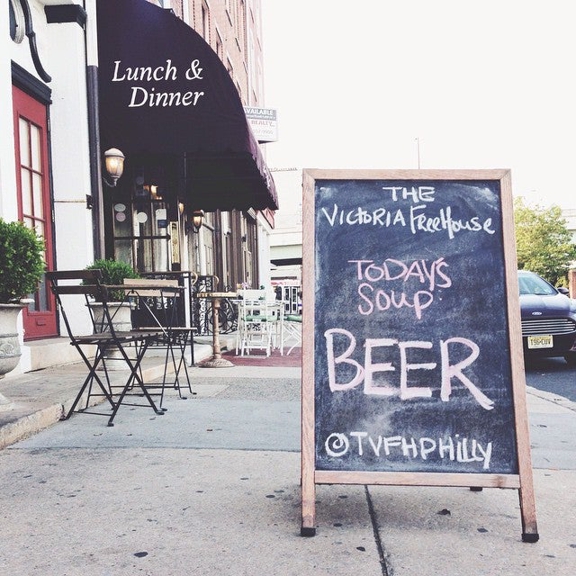 Lunch &
Dinner
AVAILABLE
THE
VICTORIA FreeHouse
TODAY'S
SOUP:
BEER
@TVFHPHILLY